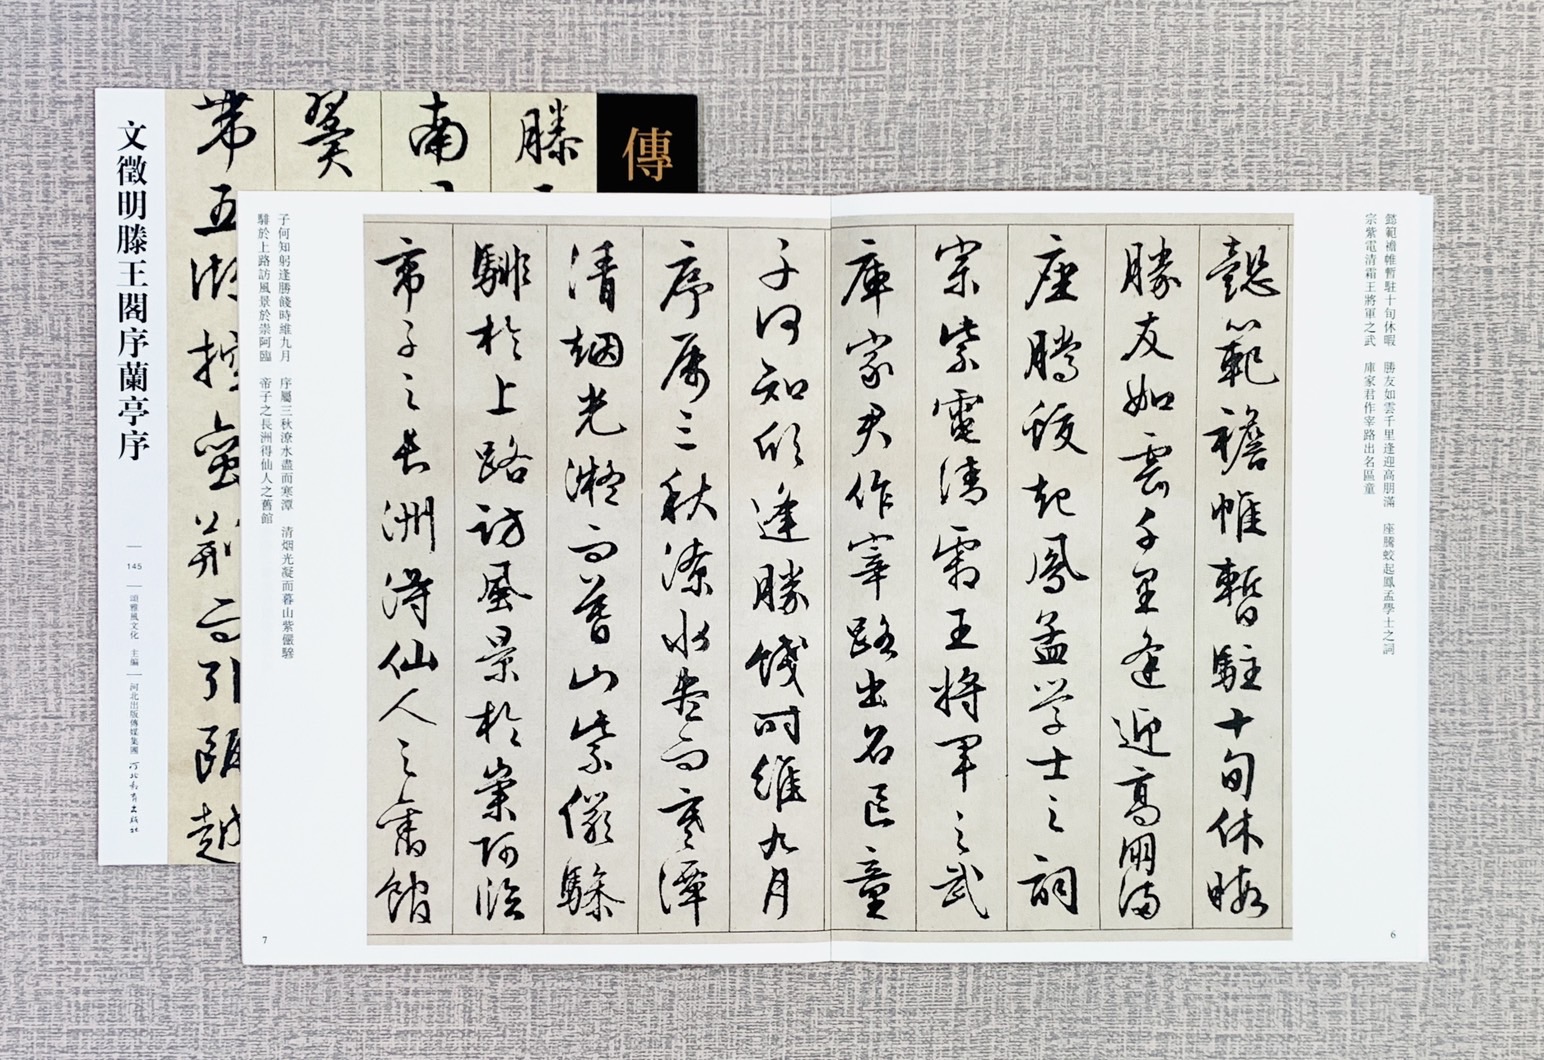 傳
滕
南
翼
帶
五
湖
控
蠻
荊
而
引
甌
越
文徵明滕王閣序蘭亭序
145
頌雅風文化 主編
河北出版傳媒集團
河北教育出版社
懿範襜帷暫駐十旬休暇 勝友如雲千里逢迎高朋滿 座騰蛟起鳳孟學士之詞
宗紫電清霜王將軍之武 庫家君作宰路出名區童
懿範襜帷暫駐十旬休暇
勝友如雲千里逢迎高朋滿
座騰蛟起鳳孟學士之詞
宗紫電清霜王將軍之武
庫家君作宰路出名區童
6
子何知躬逢勝餞時維九月
序屬三秋潦水盡而寒潭
清烟光凝而暮山紫儼驂
騑於上路訪風景於崇阿臨
帝子之長洲得仙人之舊館
子何知躬逢勝餞時維九月 序屬三秋潦水盡而寒潭 清烟光凝而暮山紫儼驂
騑於上路訪風景於崇阿臨 帝子之長洲得仙人之舊館
7